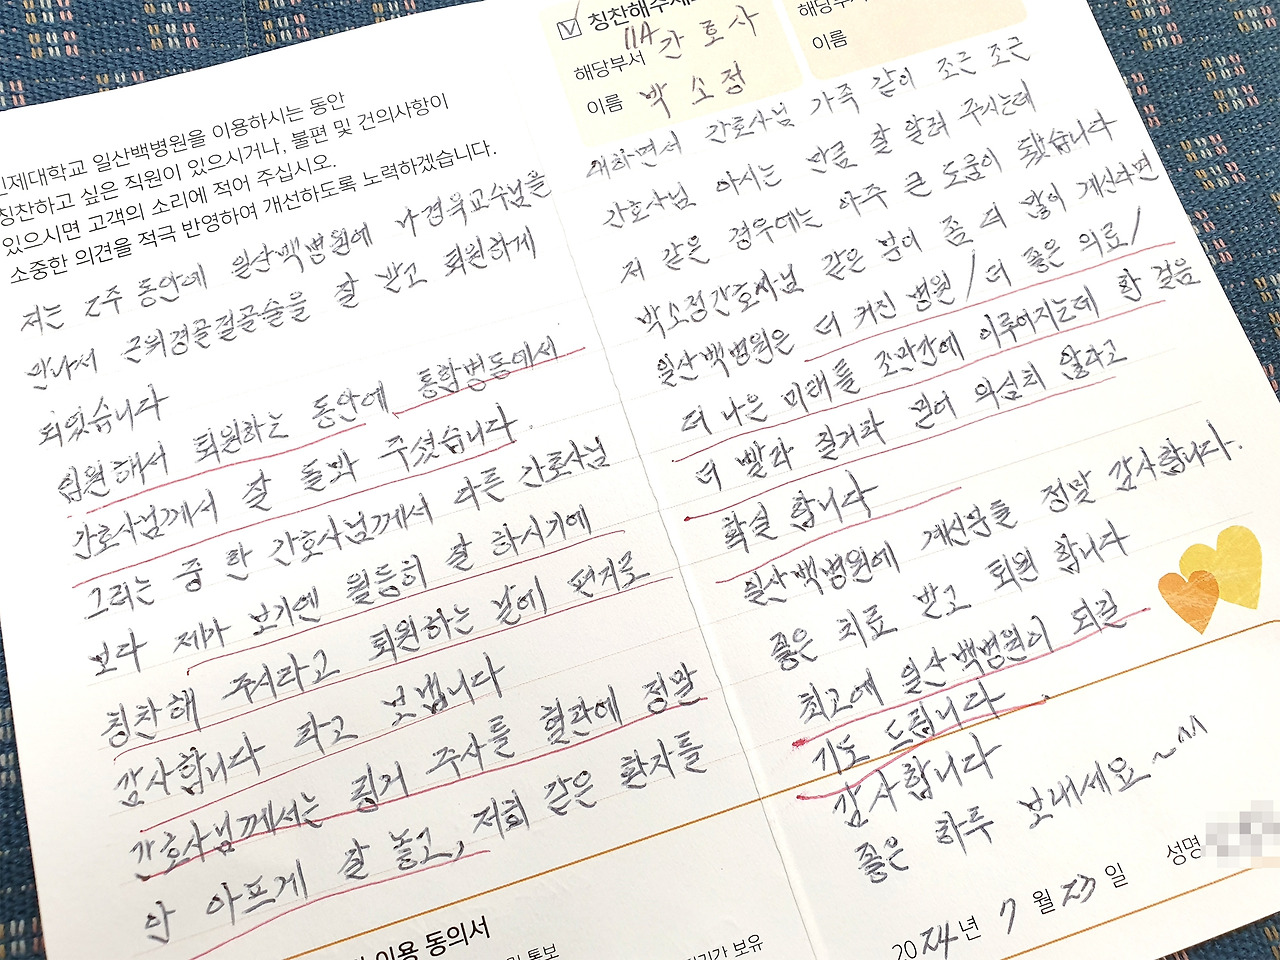 인제대학교 일산백병원을 이용하시는 동안
칭찬하고 싶은 직원이 있으시거나, 불편 및 건의사항이
있으시면 고객의 소리에 적어 주십시오.
소중한 의견을 적극 반영하여 개선하도록 노력하겠습니다.
저는 2주 동안에 일산백병원에 나경욱교수님을
만나서 근위경골절골술을 잘 받고 퇴원하게
되었습니다
입원해서 퇴원하는 동안에 통합병동에서
간호사님께서 잘 돌봐 주셨습니다
그러는 중 한 간호사님께서 다른 간호사님
보다 제가 보기엔 월등히 잘 하시기에
칭찬해 주시라고 퇴원하는 날에 편지로
감사합니다 라고 보냅니다
간호사님께서는 링거 주사를 혈관에 정말
안 아프게 잘 놓고, 저희 같은 환자를
이용 동의서
통보
보유
칭찬해주세요
해당부서 11A 간호사
이름 박소정
해당부서
이름
대하면서 간호사님 가족 같이 조근 조근
간호사님 아시는 만큼 잘 알려 주시는데
저 같은 경우에는 아주 큰 도움이 됐습니다
박소정간호사님 같은 분이 좀 더 많이 계신다면
일산백병원은 더 커진 병원/더 좋은 의료/
더 나은 미래를 조만간에 이루어지는데 한 걸음
더 빨라 질거라 믿어 의심치 않다고
확실 합니다
일산백병원에 계신분들 정말 감사합니다.
좋은 치료 받고 퇴원 합니다
최고에 일산백병원이 되길
기도 드립니다
감사합니다
좋은 하루 보내세요~^^
2024년 7월 23일 성명